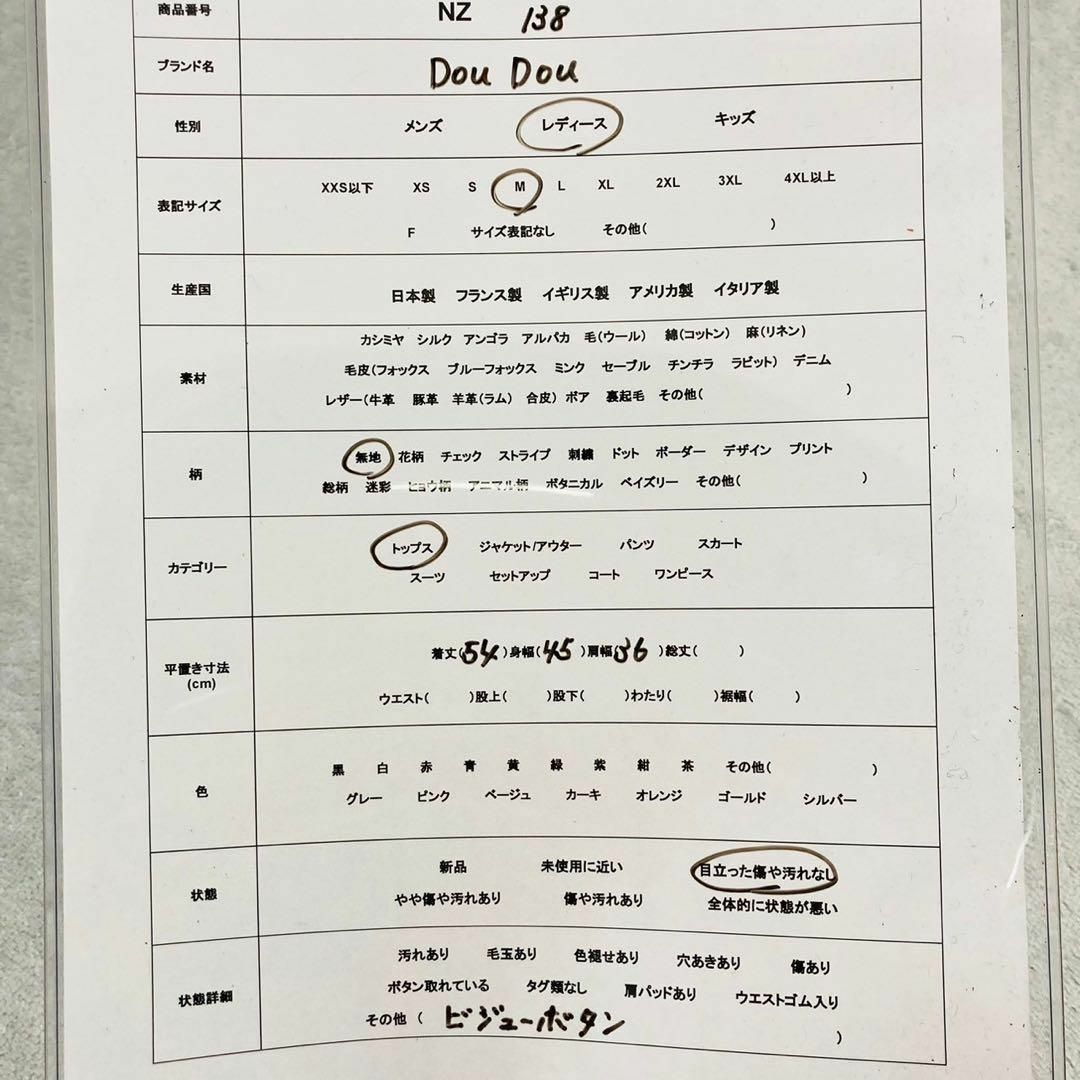 商品番号 NZ 138
ブランド名 Dou Dou
性別 メンズ レディース キッズ
表記サイズ XXS以下 XS S M L XL 2XL 3XL 4XL以上
F サイズ表記なし その他( )
生産国 日本製 フランス製 イギリス製 アメリカ製 イタリア製
素材 カシミヤ シルク アンゴラ アルパカ 毛(ウール) 綿(コットン) 麻(リネン)
毛皮(フォックス ブルーフォックス ミンク セーブル チンチラ ラビット) デニム
レザー(牛革 豚革 羊革(ラム) 合皮) ボア 裏起毛 その他( )
柄 無地 花柄 チェック ストライプ 刺繍 ドット ボーダー デザイン プリント
総柄 迷彩 ヒョウ柄 アニマル柄 ボタニカル ペイズリー その他( )
カテゴリー トップス ジャケット/アウター パンツ スカート
スーツ セットアップ コート ワンピース
平置き寸法 (cm) 着丈(54)身幅(45)肩幅(36)総丈( )
ウエスト( )股上( )股下( )わたり( )裾幅( )
色 黒 白 赤 青 黄 緑 紫 紺 茶 その他( )
グレー ピンク ベージュ カーキ オレンジ ゴールド シルバー
状態 新品 未使用に近い 目立った傷や汚れなし
やや傷や汚れあり 傷や汚れあり 全体的に状態が悪い
状態詳細 汚れあり 毛玉あり 色褪せあり 穴あきあり 傷あり
ボタン取れている タグ類なし 肩パッドあり ウエストゴム入り
その他 ( ビジューボタン )